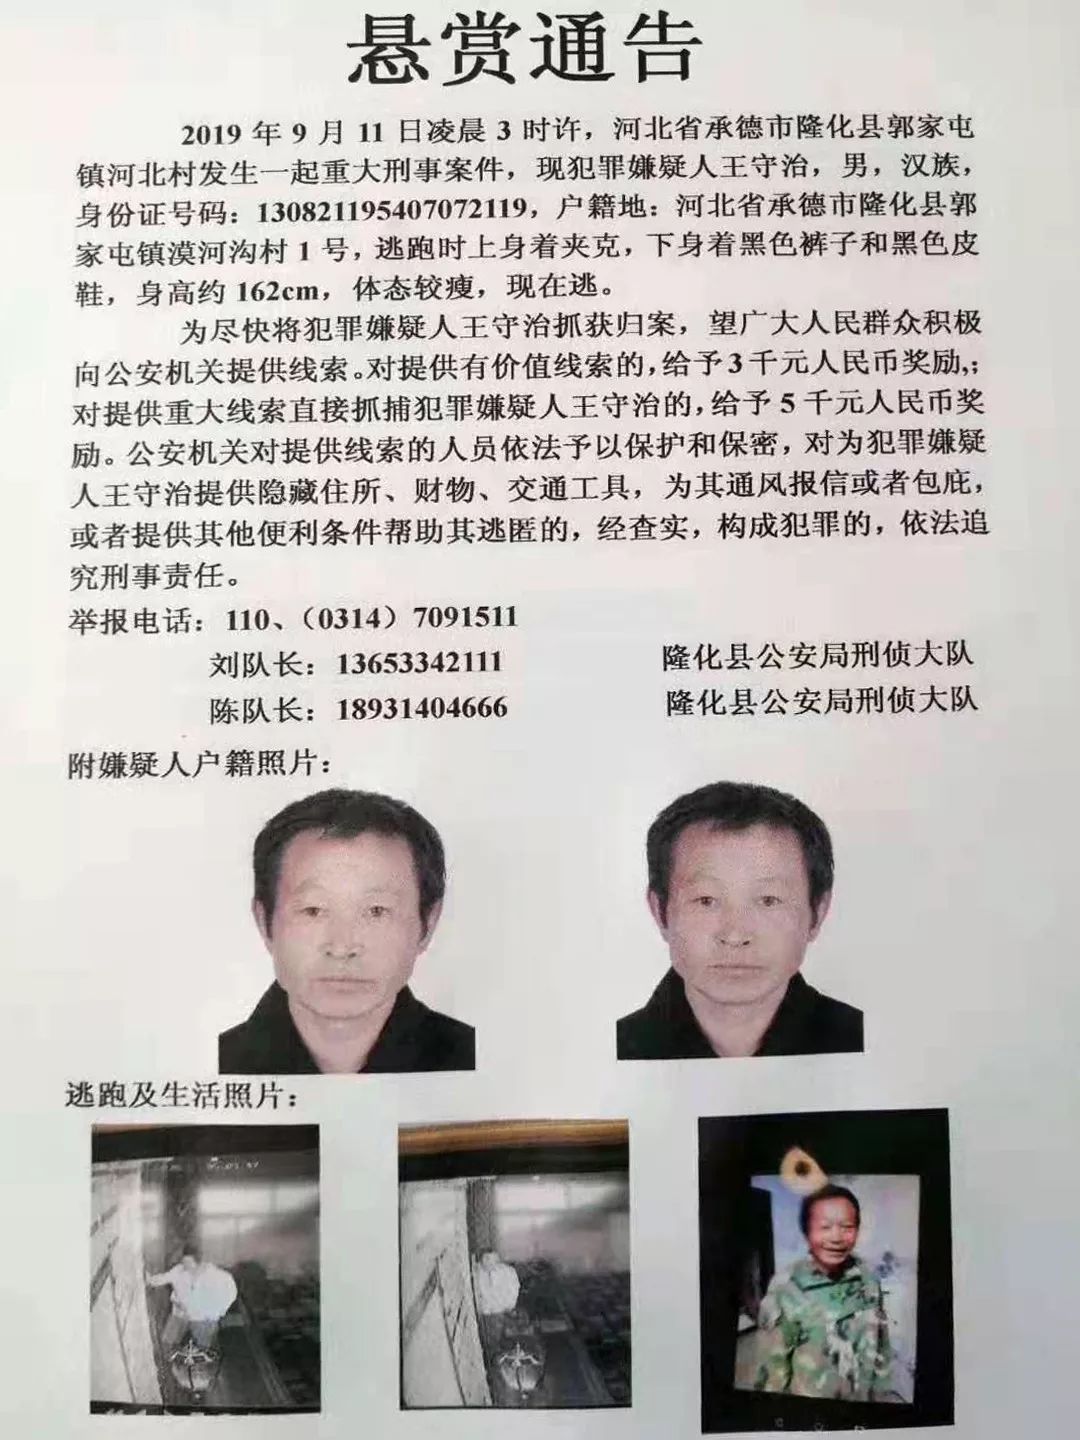 悬赏通告
2019 年 9 月 11 日凌晨 3 时许，河北省承德市隆化县郭家屯
镇河北村发生一起重大刑事案件，现犯罪嫌疑人王守治，男，汉族，
身份证号码：130821195407072119，户籍地：河北省承德市隆化县郭
家屯镇漠河沟村 1 号，逃跑时上身着夹克，下身着黑色裤子和黑色皮
鞋，身高约 162cm，体态较瘦，现在逃。
为尽快将犯罪嫌疑人王守治抓获归案，望广大人民群众积极
向公安机关提供线索。对提供有价值线索的，给予 3 千元人民币奖励,；
对提供重大线索直接抓捕犯罪嫌疑人王守治的，给予 5 千元人民币奖
励。公安机关对提供线索的人员依法予以保护和保密，对为犯罪嫌疑
人王守治提供隐藏住所、财物、交通工具，为其通风报信或者包庇，
或者提供其他便利条件帮助其逃匿的，经查实，构成犯罪的，依法追
究刑事责任。
举报电话：110、（0314）7091511
刘队长：13653342111 隆化县公安局刑侦大队
陈队长：18931404666 隆化县公安局刑侦大队
附嫌疑人户籍照片：
逃跑及生活照片：